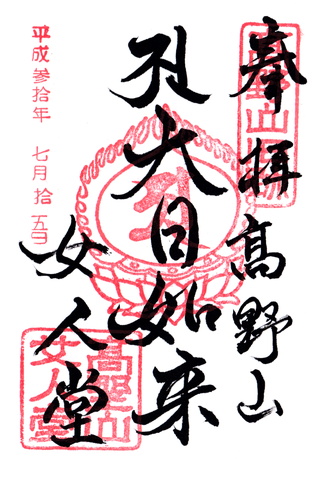 奉拝 高野山
大日如来
女人堂
平成参拾年 七月拾五日
高野山
女人堂